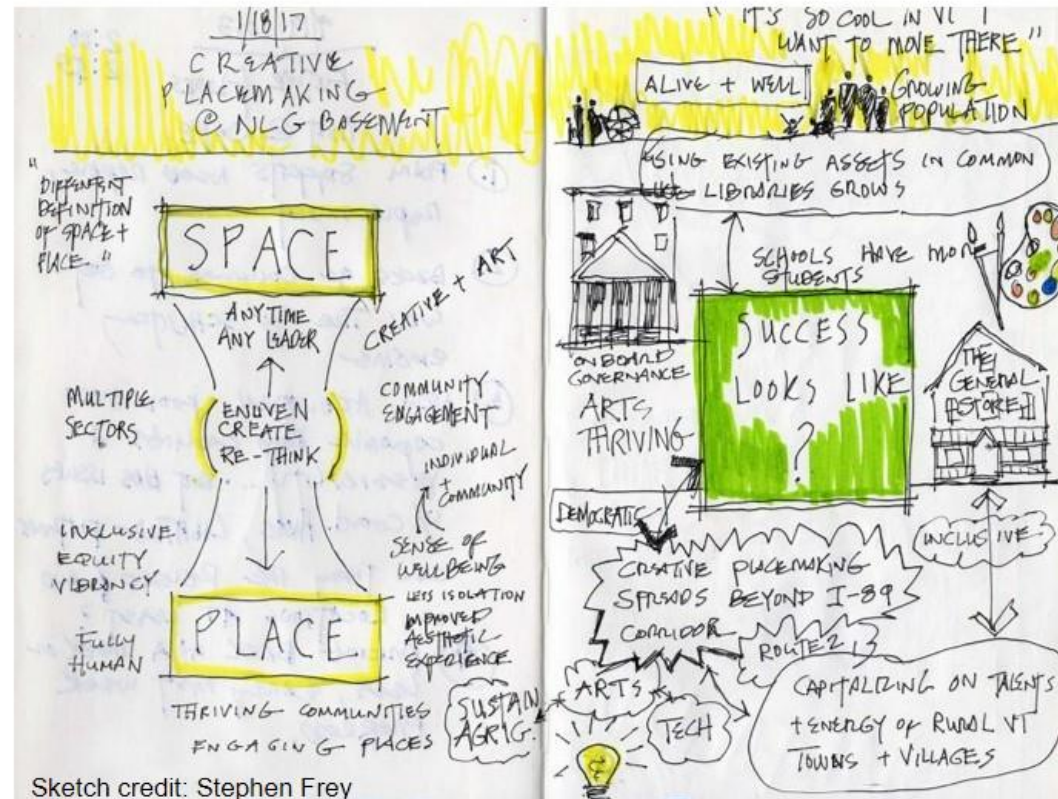 1/18/17
CREATIVE
PLACEMAKING
@ NLG BASEMENT
"DIFFERENT
DEFINITION
OF SPACE +
PLACE"
SPACE
ANYTIME
ANY LEADER
CREATIVE + ART
MULTIPLE
SECTORS
ENLIVEN
CREATE
RE-THINK
COMMUNITY
ENGAGEMENT
INDIVIDUAL
+
COMMUNITY
INCLUSIVE
EQUITY
VIBRANCY
SENSE OF
WELLBEING
LESS ISOLATION
IMPROVED
AESTHETIC
EXPERIENCE
PLACE
FULLY
HUMAN
THRIVING COMMUNITIES
ENGAGING PLACES
SUSTAIN
AGRIG.
"IT'S SO COOL IN VT I
WANT TO MOVE THERE"
ALIVE + WELL
GROWING
POPULATION
USING EXISTING ASSETS IN COMMON
USE LIBRARIES GROWS
SCHOOLS HAVE MORE
STUDENTS
ON BOARD
GOVERNANCE
ARTS
THRIVING
SUCCESS
LOOKS LIKE
?
THE
GENERAL
STORE
DEMOCRATIC
INCLUSIVE
CREATIVE PLACEMAKING
SPREADS BEYOND I-89
CORRIDOR
ROUTE 2
ARTS
TECH
CAPITALIZING ON TALENTS
+ ENERGY OF RURAL VT
TOWNS + VILLAGES
Sketch credit: Stephen Frey